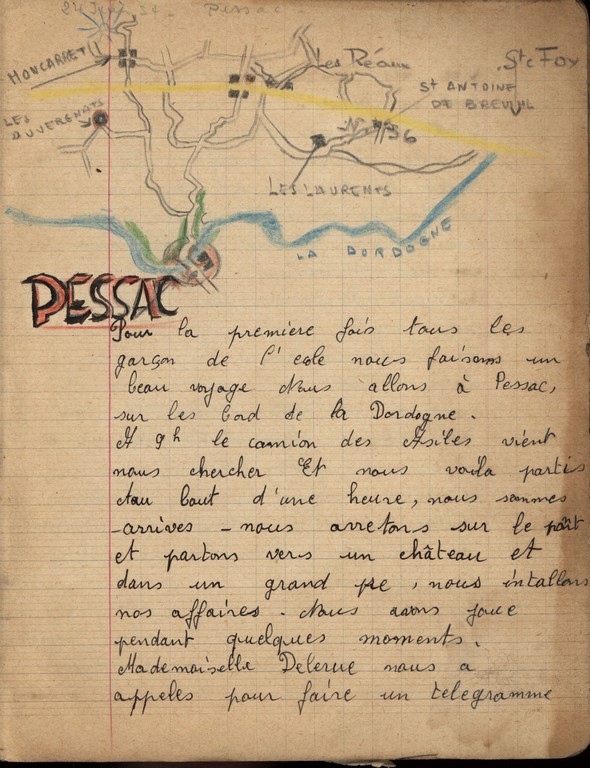 24 Juin 54 - Pessac -
MONCARRET
Les Réaux
Ste Foy
ST ANTOINE
DE BREUILH
LES
DUVERGNATS
N 136
LES LAURENTS
LA DORDOGNE
PESSAC
Pour la première fois tous les
garçon de l'ecole nous faisons un
beau voyage Nous allons à Pessac,
sur les bord de la Dordogne.
A 9h le camion des Asiles vient
nous chercher Et nous voila partis
Au bout d'une heure, nous sommes
arrives - nous arretons sur le
et partons vers un château et
dans un grand pre, nous intallons
nos affaires. Nous avons joue
pendant quelques moments.
Mademoiselle Delerue nous a
appeles pour faire un telegramme